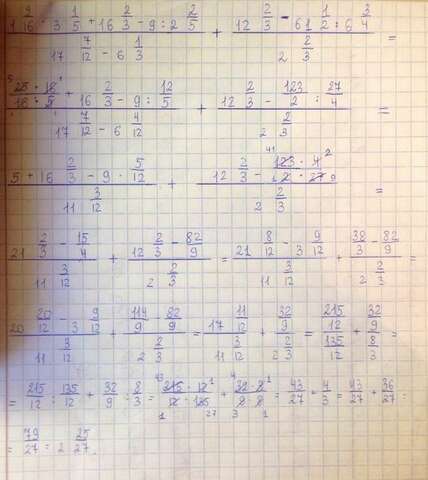 (1 9/16 · 3 1/5 + 16 2/3 - 9 : 2 2/5) / (17 7/12 - 6 1/3) + (12 2/3 - 61 1/2 : 6 3/4) / (2 2/3) =
(25 · 16 / 16 · 5 + 16 2/3 - 9 : 12/5) / (17 7/12 - 6 4/12) + (12 2/3 - 123/2 : 27/4) / (2 2/3) =
(5 + 16 2/3 - 9 · 5/12) / (11 3/12) + (12 2/3 - 123 · 4 / 2 · 27) / (2 2/3) =
(21 2/3 - 15/4) / (11 3/12) + (12 2/3 - 82/9) / (2 2/3) = (21 8/12 - 3 9/12) / (11 3/12) + (38/3 - 82/9) / (2 2/3) =
(20 20/12 - 3 9/12) / (11 3/12) + (114/9 - 82/9) / (2 2/3) = (17 11/12) / (11 3/12) + (32/9) / (2 2/3) = (215/12) / (135/12) + (32/9) / (8/3) =
= 215/12 : 135/12 + 32/9 : 8/3 = 215 · 12 / 12 · 135 + 32 · 3 / 9 · 8 = 43/27 + 4/3 = 43/27 + 36/27 =
= 79/27 = 2 25/27.